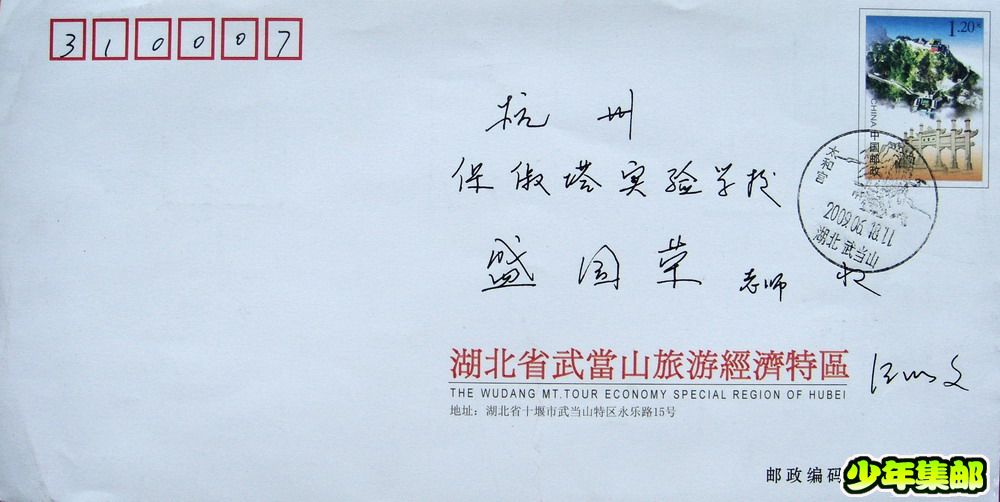 310007
1.20元
CHINA 中国邮政
杭州
保俶塔实验学校
太和宫
2009.06.18.11
湖北 武当山
盛国荣 老师 收
湖北省武當山旅游經濟特區
THE WUDANG MT.TOUR ECONOMY SPECIAL REGION OF HUBEI
地址：湖北省十堰市武当山特区永乐路15号
邮政编码
少年集邮